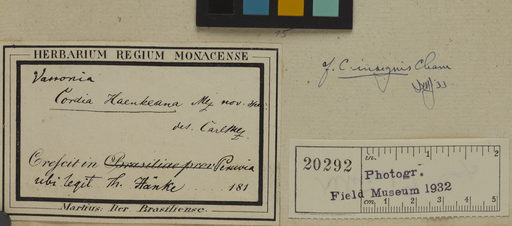 HERBARIUM REGIUM MONACENSE
Varronia
Cordia Haenkeana Mez nov. spec.
det. Carl Mez
Crescit in Brasiliae prov Peruvia
ubi legit Th. Hänke ..... 181
Martius: Iter Brasiliense.
cf. C. insignis Cham
IMJ '33
20292
in. 1 2
Photogr:
Field Museum 1932
cm. 1 2 3 4 5